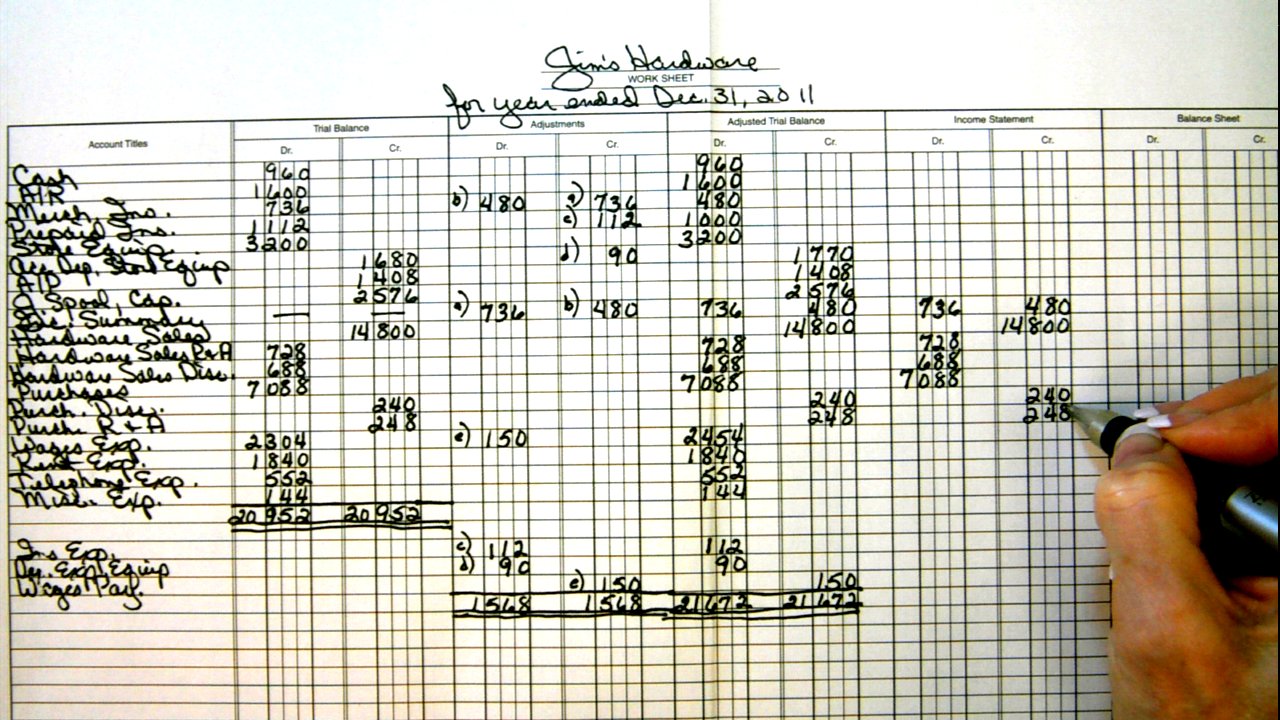 Jim's Hardware
WORK SHEET
for year ended Dec. 31, 2011
Account Titles Trial Balance Adjustments Adjusted Trial Balance Income Statement Balance Sheet
Dr. Cr. Dr. Cr. Dr. Cr. Dr. Cr. Dr. Cr.
Cash 960 960
A/R 1600 1600
Merch. Inv. 736 b) 480 a) 736 480
Prepaid Ins. 1112 c) 112 1000
Store Equip. 3200 3200
Acc. Dep. Store Equip 1680 d) 90 1770
A/P 1408 1408
Cap. 2576 2576
Inc. Summary — — a) 736 b) 480 736 480 736 480
Hardware Sales 14800 14800 14800
Hardware Sales R+A 728 728 728
Hardware Sales Disc. 688 688 688
Purchases 7088 7088 7088
Purch. Disc. 240 240 240
Purch. R+A 248 248 248
Wages Exp. 2304 e) 150 2454
Rent Exp. 1840 1840
Telephone Exp. 552 552
Misc. Exp. 144 144
20952 20952
Ins Exp. c) 112 112
Dep. Exp Equip d) 90 90
Wages Pay. e) 150 150
1568 1568 21672 21672